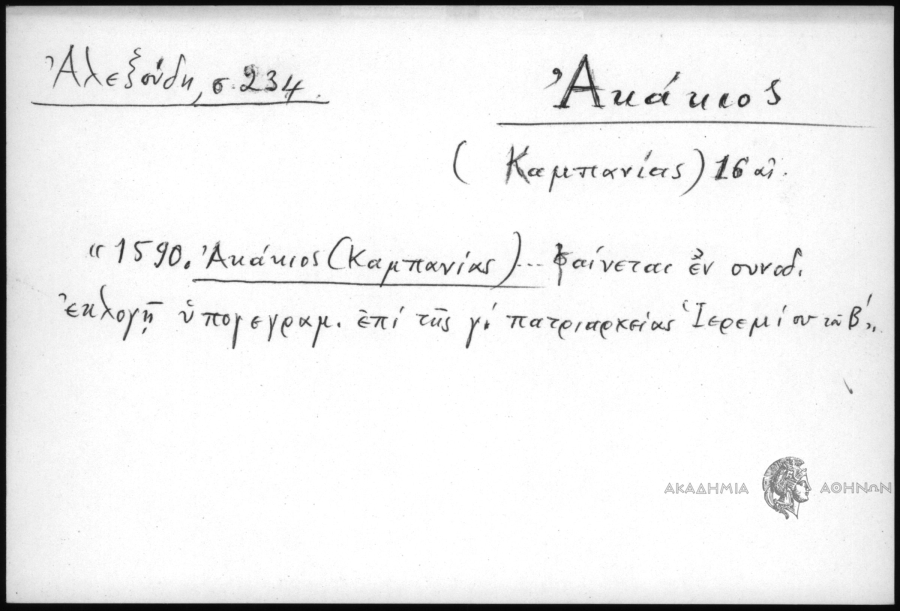 Ἀλεξούδη, σ. 234.
Ἀκάκιος
(Καμπανίας) 16 αἰ.
«1590. Ἀκάκιος (Καμπανίας)... φαίνεται ἐν συνοδ.
ἐκλογῇ ὑπογεγραμ. ἐπί τῆς γ΄ πατριαρχείας Ἱερεμίου τοῦ Β΄».
ΑΚΑΔΗΜΙΑ ΑΘΗΝΩΝ